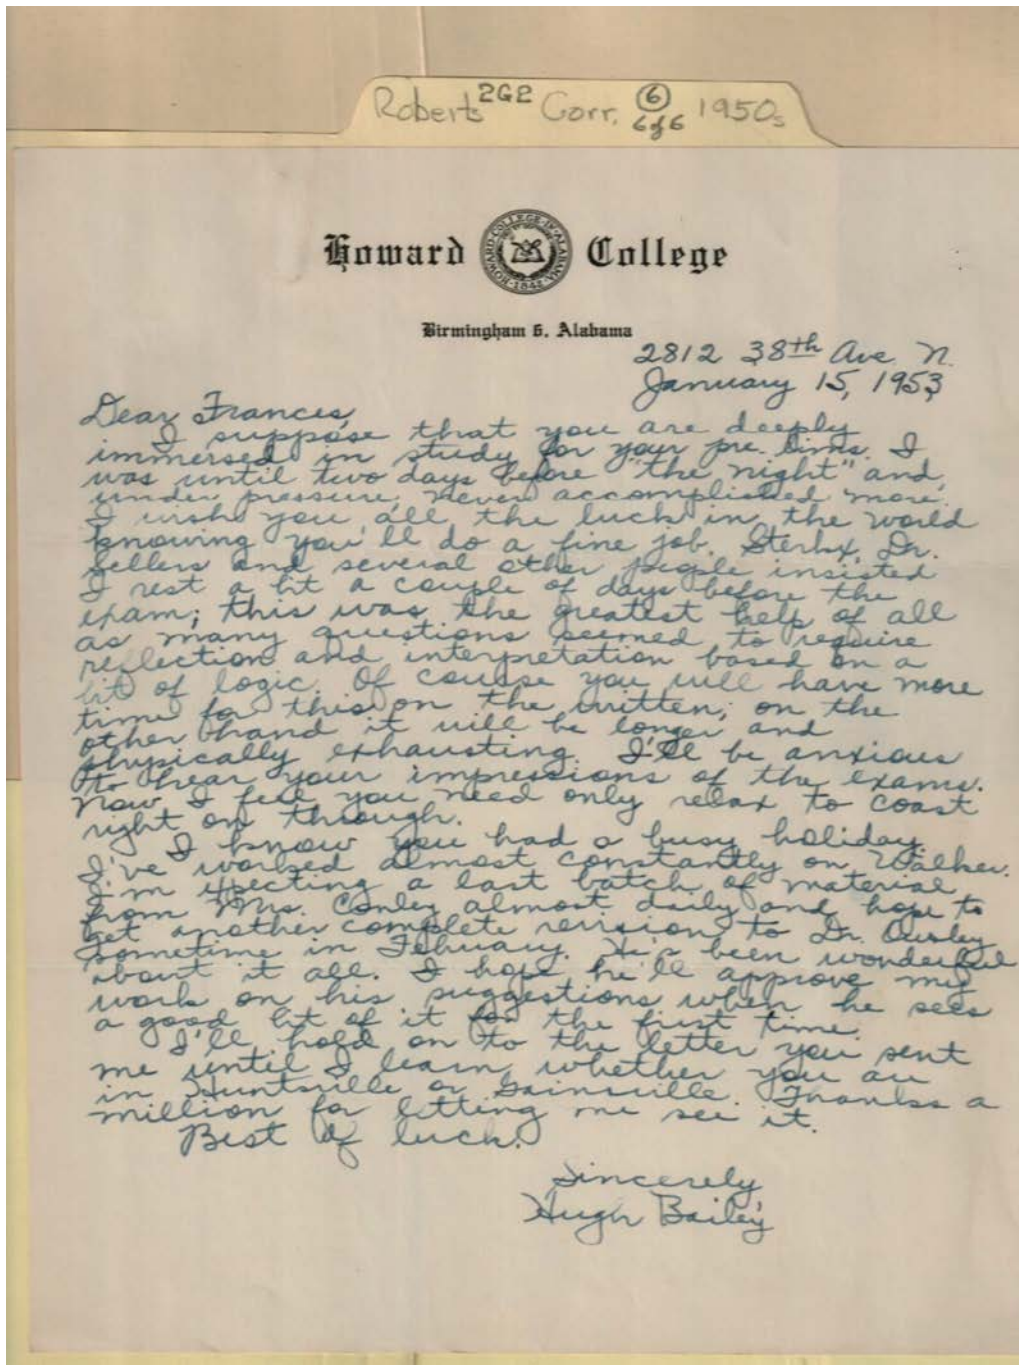 Roberts 2G2 Corr. 6 1950s
6 of 6
Howard College
HOWARD COLLEGE IN ALABAMA 1842
Birmingham 6, Alabama
2812 38th Ave. N.
January 15, 1953
Dear Frances,
I suppose that you are deeply
immersed in study for your pre. lims. I
was until two days before "the night" and,
under pressure, never accomplished more.
I wish you all the luck in the world
knowing you'll do a fine job. Sterkx, Dr.
Sellers and several other people insisted
I rest a bit a couple of days before the
exam; this was the greatest help of all
as many questions seemed to require
reflection and interpretation based on a
bit of logic. Of course you will have more
time for this on the written; on the
other hand it will be longer and
physically exhausting. I'll be anxious
to hear your impressions of the exams.
Now I feel you need only relax to coast
right on through.
I know you had a busy holiday.
I've worked almost constantly on Walker.
I'm expecting a last batch of material
from Mrs. Conley almost daily and hope to
get another complete revision to Dr. Owsley
sometime in February. He's been wonderful
about it all. I hope he'll approve my
work on his suggestions when he sees
a good bit of it for the first time.
I'll hold on to the letter you sent
me until I learn whether you are
in Huntsville or Gainsville. Thanks a
million for letting me see it.
Best of luck.
Sincerely
Hugh Bailey